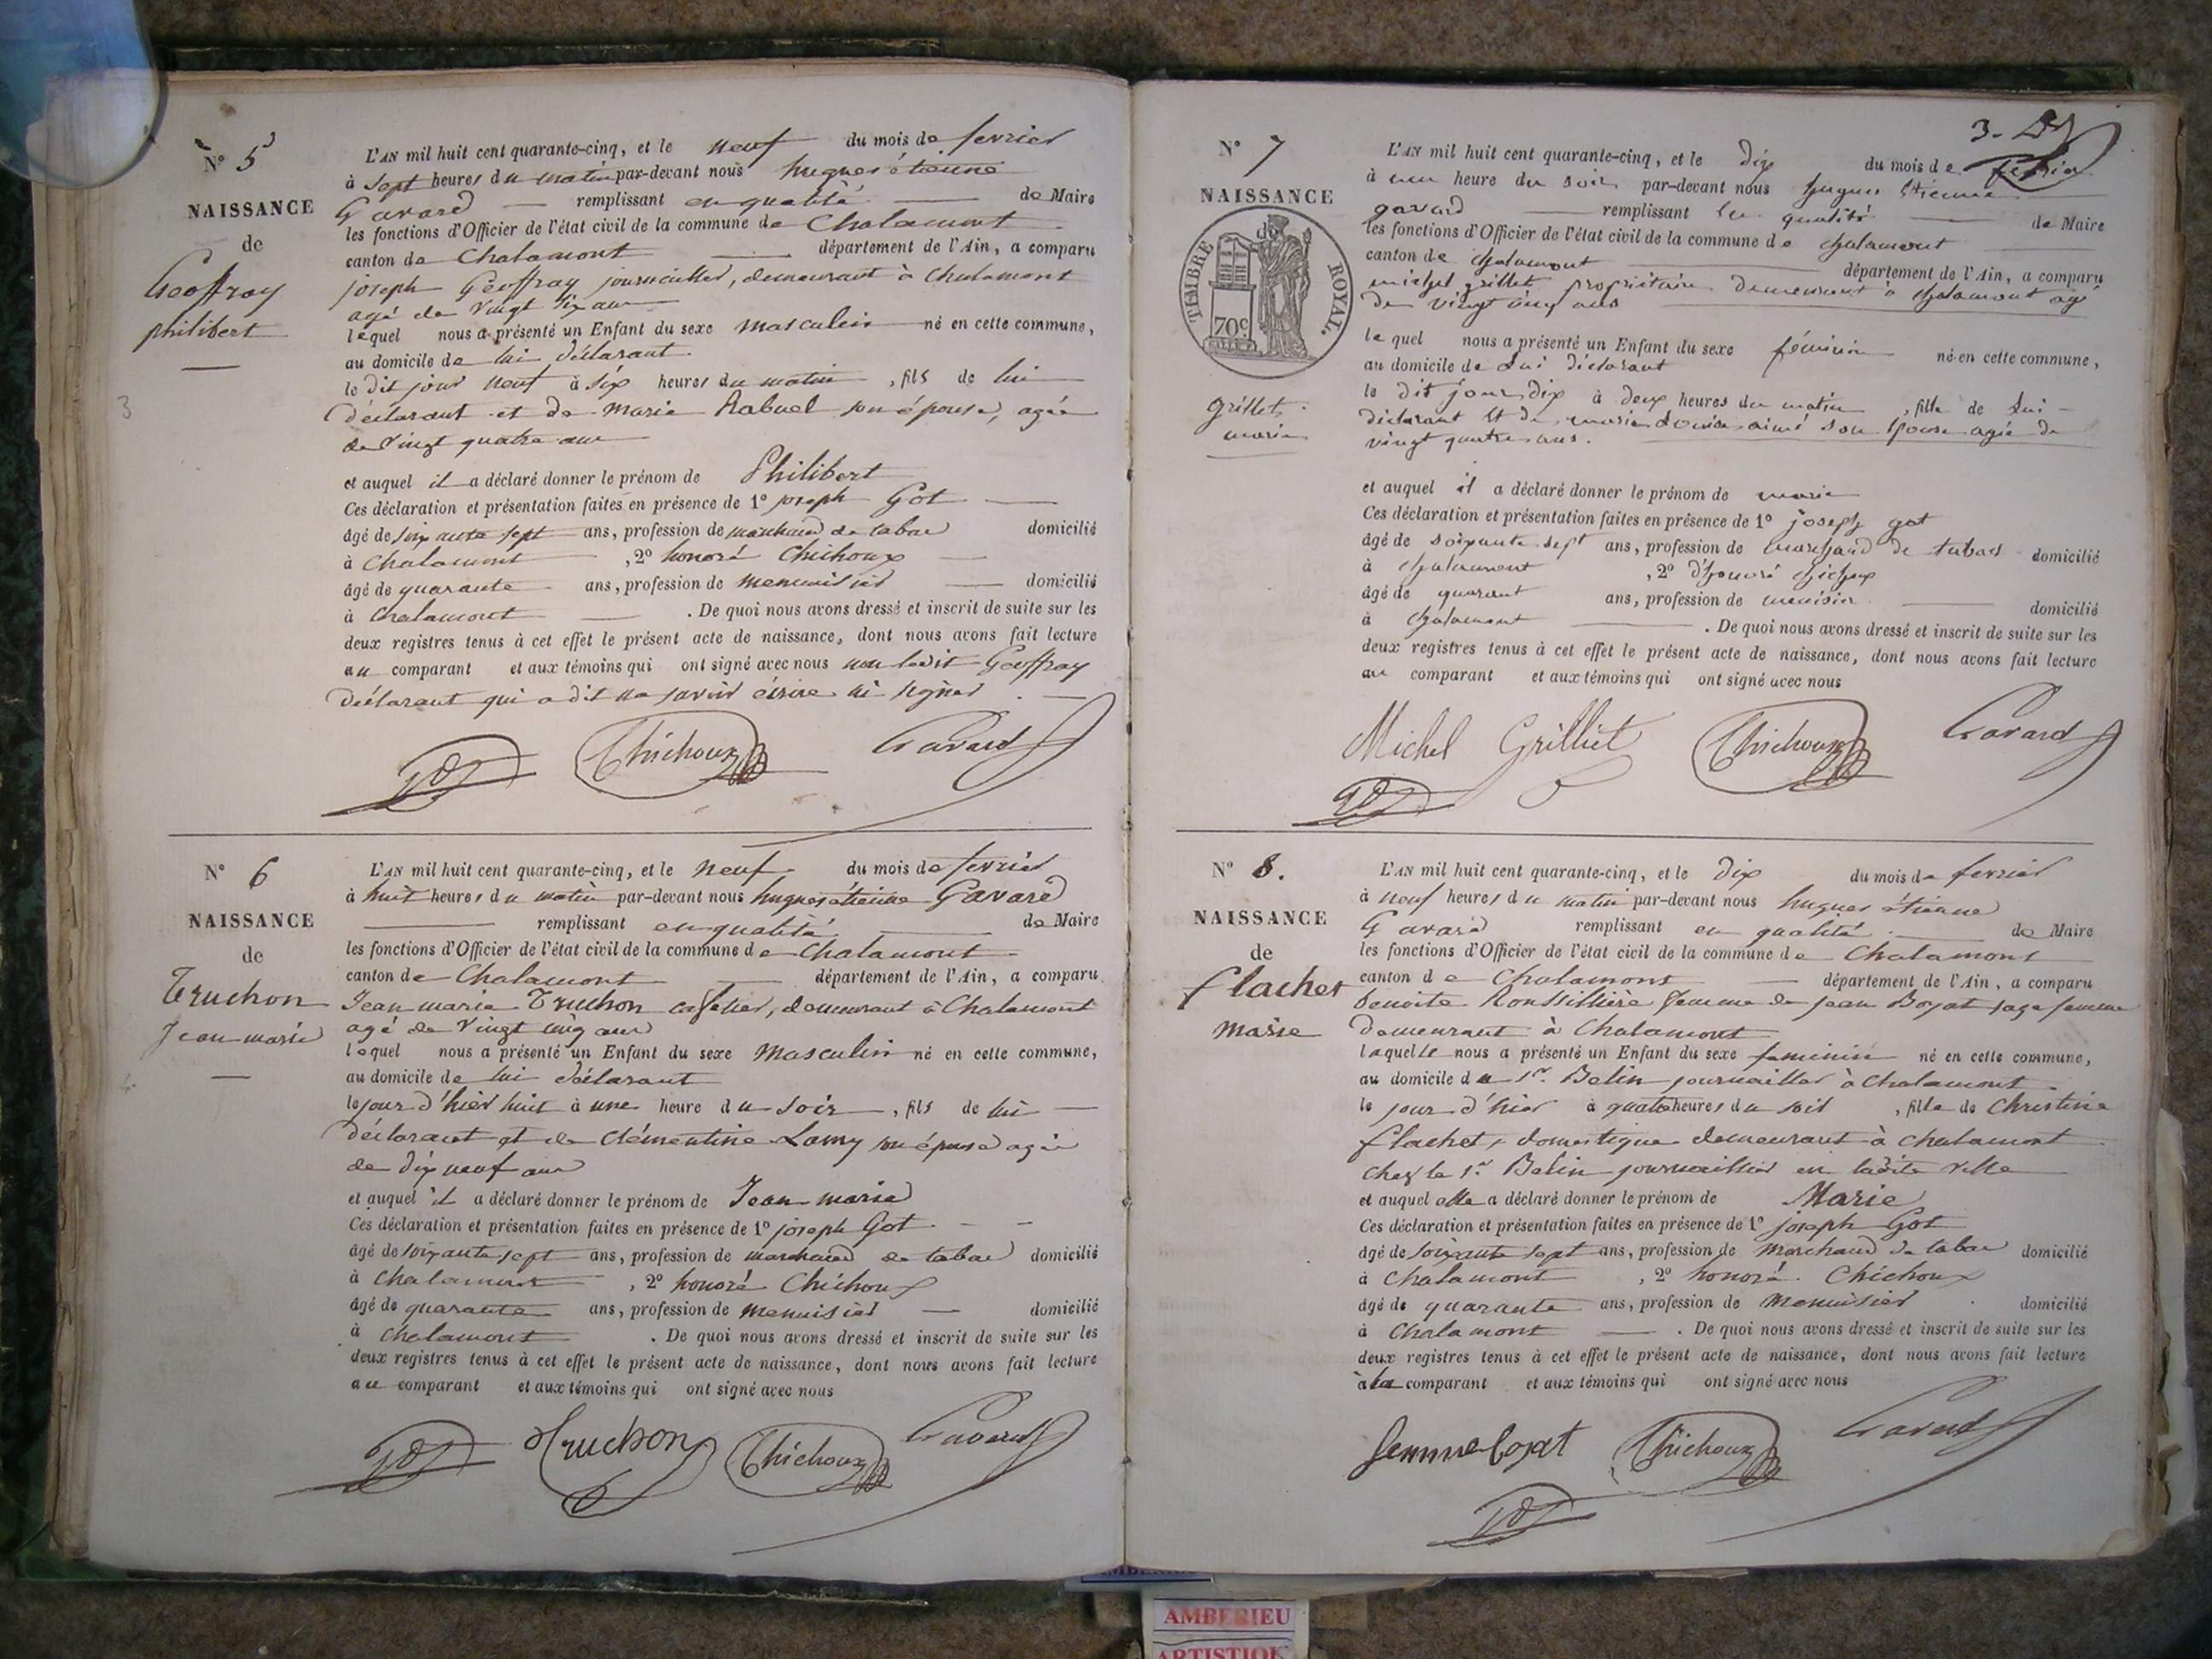 N° 5
NAISSANCE
de
Geoffray
philibert
L'AN mil huit cent quarante-cinq, et le neuf du mois de fevrier
à Sept heures du matin par-devant nous hugues étienne
Gavard remplissant en qualité de Maire
les fonctions d'Officier de l'état civil de la commune de Chalamont
canton de Chalamont département de l'Ain, a comparu
joseph Geoffray journailler, demeurant à Chalamont
agé de vingt six ans
lequel nous a présenté un Enfant du sexe masculin né en cette commune,
au domicile de lui déclarant
le dit jour neuf à six heures du matin, fils de lui
déclarant et de marie Rabuel son épouse, agée
de vingt quatre ans
et auquel il a déclaré donner le prénom de Philibert
Ces déclaration et présentation faites en présence de 1° joseph Got
âgé de soixante sept ans, profession de marchand de tabac domicilié
à Chalamont, 2° honoré Chichoux
âgé de quarante ans, profession de menuisier domicilié
à Chalamont. De quoi nous avons dressé et inscrit de suite sur les
deux registres tenus à cet effet le présent acte de naissance, dont nous avons fait lecture
au comparant et aux témoins qui ont signé avec nous non ledit Geoffray
déclarant qui a dit ne savoir écrire ni signer.
Got Chichoux Gavard
3
N° 6
NAISSANCE
de
Truchon
Jean marie
L'AN mil huit cent quarante-cinq, et le neuf du mois de fevrier
à huit heures du matin par-devant nous hugues étienne Gavard
remplissant en qualité de Maire
les fonctions d'Officier de l'état civil de la commune de Chalamont
canton de Chalamont département de l'Ain, a comparu
Jean marie Truchon cafetier, demeurant à Chalamont
agé de vingt cinq ans
lequel nous a présenté un Enfant du sexe masculin né en cette commune,
au domicile de lui déclarant
le jour d'hier huit à une heure du soir, fils de lui
déclarant et de Clémentine Lamy son épouse agée
de dix neuf ans
et auquel il a déclaré donner le prénom de Jean marie
Ces déclaration et présentation faites en présence de 1° joseph Got
âgé de soixante sept ans, profession de marchand de tabac domicilié
à Chalamont, 2° honoré Chichoux
âgé de quarante ans, profession de menuisier domicilié
à Chalamont. De quoi nous avons dressé et inscrit de suite sur les
deux registres tenus à cet effet le présent acte de naissance, dont nous avons fait lecture
au comparant et aux témoins qui ont signé avec nous
Got Truchon Chichoux Gavard
3.
N° 7
NAISSANCE
TIMBRE ROYAL.
70c
grillet
marie
L'AN mil huit cent quarante-cinq, et le dix du mois de Février
à une heure du soir par-devant nous hugues Etienne
gavard remplissant en qualité de Maire
les fonctions d'Officier de l'état civil de la commune de chalamont
canton de chalamont département de l'Ain, a comparu
michel grillet propriétaire demeurant à chalamont agé
de vingt cinq ans
lequel nous a présenté un Enfant du sexe féminin né en cette commune,
au domicile de Lui déclarant
le dit jour dix à deux heures du matin, fille de Lui
déclarant Et de marie aimé son Epouse agée de
vingt quatre ans.
et auquel il a déclaré donner le prénom de marie
Ces déclaration et présentation faites en présence de 1° joseph got
âgé de soixante sept ans, profession de marchand de tabacs domicilié
à chalamont, 2° d'honoré chichoux
âgé de quarant ans, profession de menisier domicilié
à chalamont. De quoi nous avons dressé et inscrit de suite sur les
deux registres tenus à cet effet le présent acte de naissance, dont nous avons fait lecture
au comparant et aux témoins qui ont signé avec nous
Michel Grilliet Chichoux Gavard
Got
N° 8.
NAISSANCE
de
flachet
Marie
L'AN mil huit cent quarante-cinq, et le dix du mois de fevrier
à neuf heures du matin par-devant nous hugues étienne
Gavard remplissant en qualité de Maire
les fonctions d'Officier de l'état civil de la commune de Chalamont
canton de Chalamont département de l'Ain, a comparu
benoite Roussillière femme de jean Boyat sage femme
demeurant à Chalamont
laquelle nous a présenté un Enfant du sexe feminin né en cette commune,
au domicile du Sr. Belin journailler à Chalamont
le jour d'hier à quatre heures du soir, fille de Christine
flachet, domestique demeurant à Chalamont
chez le Sr Belin journaillier en ladite ville
et auquel elle a déclaré donner le prénom de Marie
Ces déclaration et présentation faites en présence de 1° joseph Got
âgé de soixante sept ans, profession de marchand de tabac domicilié
à Chalamont, 2° honoré Chichoux
âgé de quarante ans, profession de menuisier domicilié
à Chalamont. De quoi nous avons dressé et inscrit de suite sur les
deux registres tenus à cet effet le présent acte de naissance, dont nous avons fait lecture
à la comparant et aux témoins qui ont signé avec nous
femme boyat Chichoux Gavard
Got
AMBERIEU
ARTISTIQ